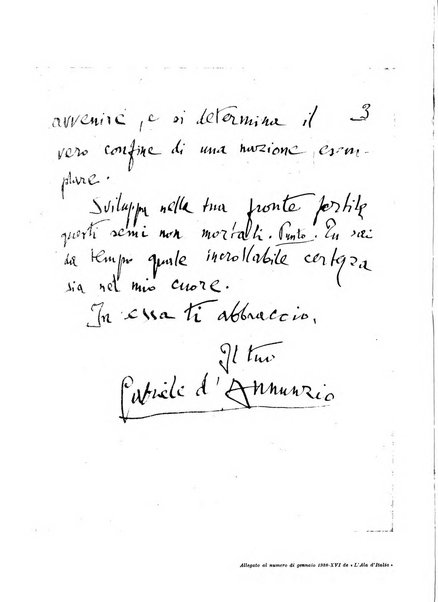 avvenire, e si determina il 3
vero confine di una nazione esem-
plare.
Sviluppa nella tua fronte fertile
questi semi non mortali. Punto. Tu sai
da tempo quale incrollabile certezza
sia nel mio cuore.
In essa ti abbraccio.
Il tuo
Gabriele d'Annunzio
Allegato al numero di gennaio 1938-XVI de « L'Ala d'Italia »